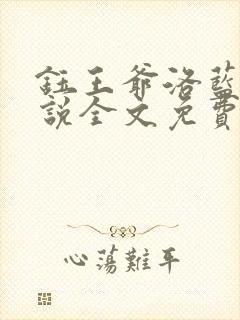 鈺王爺洛藍
說全文免費
心蕩難平